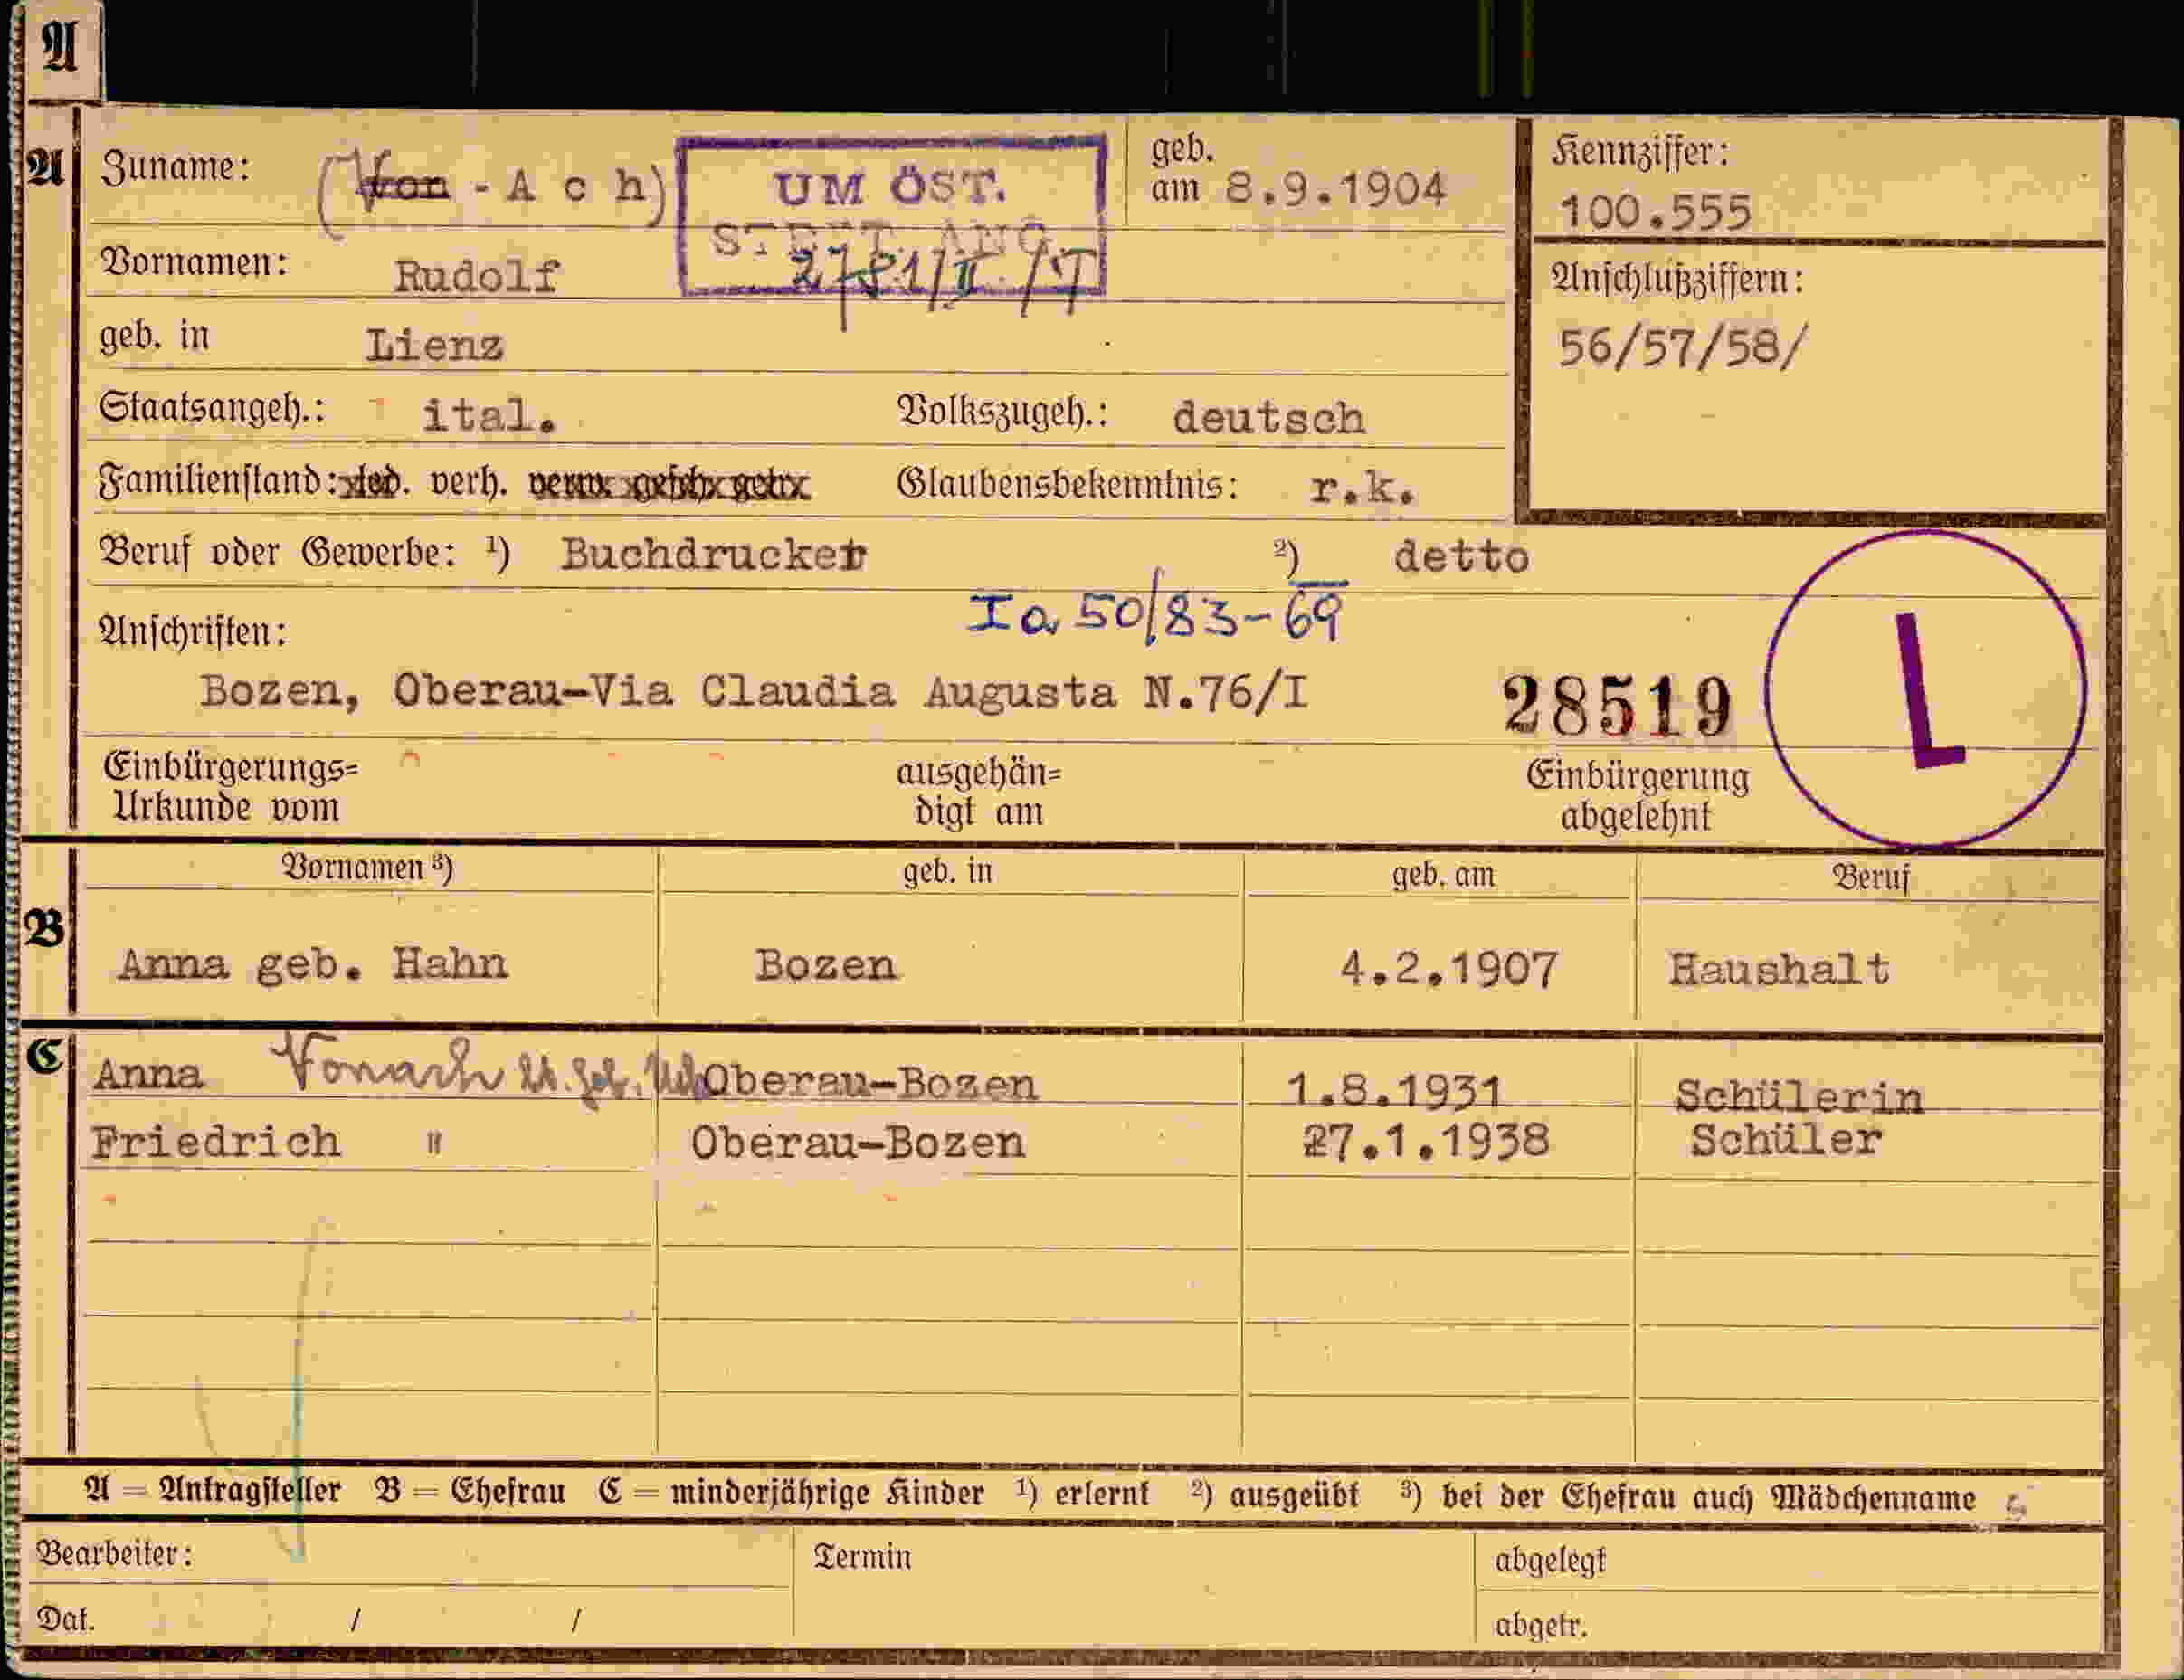 A
A
Zuname: (Von - A c h)
UM ÖST.
geb. am 8.9.1904
Kennziffer:
100.555
Vornamen: Rudolf
Anschlußziffern:
56/57/58/
geb. in Lienz
Staatsangeh.: ital. Volkszugeh.: deutsch
Familienstand: led. verh. Glaubensbekenntnis: r.k.
Beruf oder Gewerbe: ¹) Buchdrucker ²) detto
Ia 50/83-69
Anschriften:
Bozen, Oberau-Via Claudia Augusta N.76/I
28519
L
Einbürgerungs=
Urkunde vom
ausgehän=
digt am
Einbürgerung
abgelehnt
Vornamen ³) geb. in geb. am Beruf
B
Anna geb. Hahn Bozen 4.2.1907 Haushalt
C
Anna Vonach Oberau-Bozen 1.8.1931 Schülerin
Friedrich " Oberau-Bozen 27.1.1938 Schüler
A = Antragsteller B = Ehefrau C = minderjährige Kinder ¹) erlernt ²) ausgeübt ³) bei der Ehefrau auch Mädchenname
Bearbeiter: Termin abgelegt
Dat. / / abgetr.